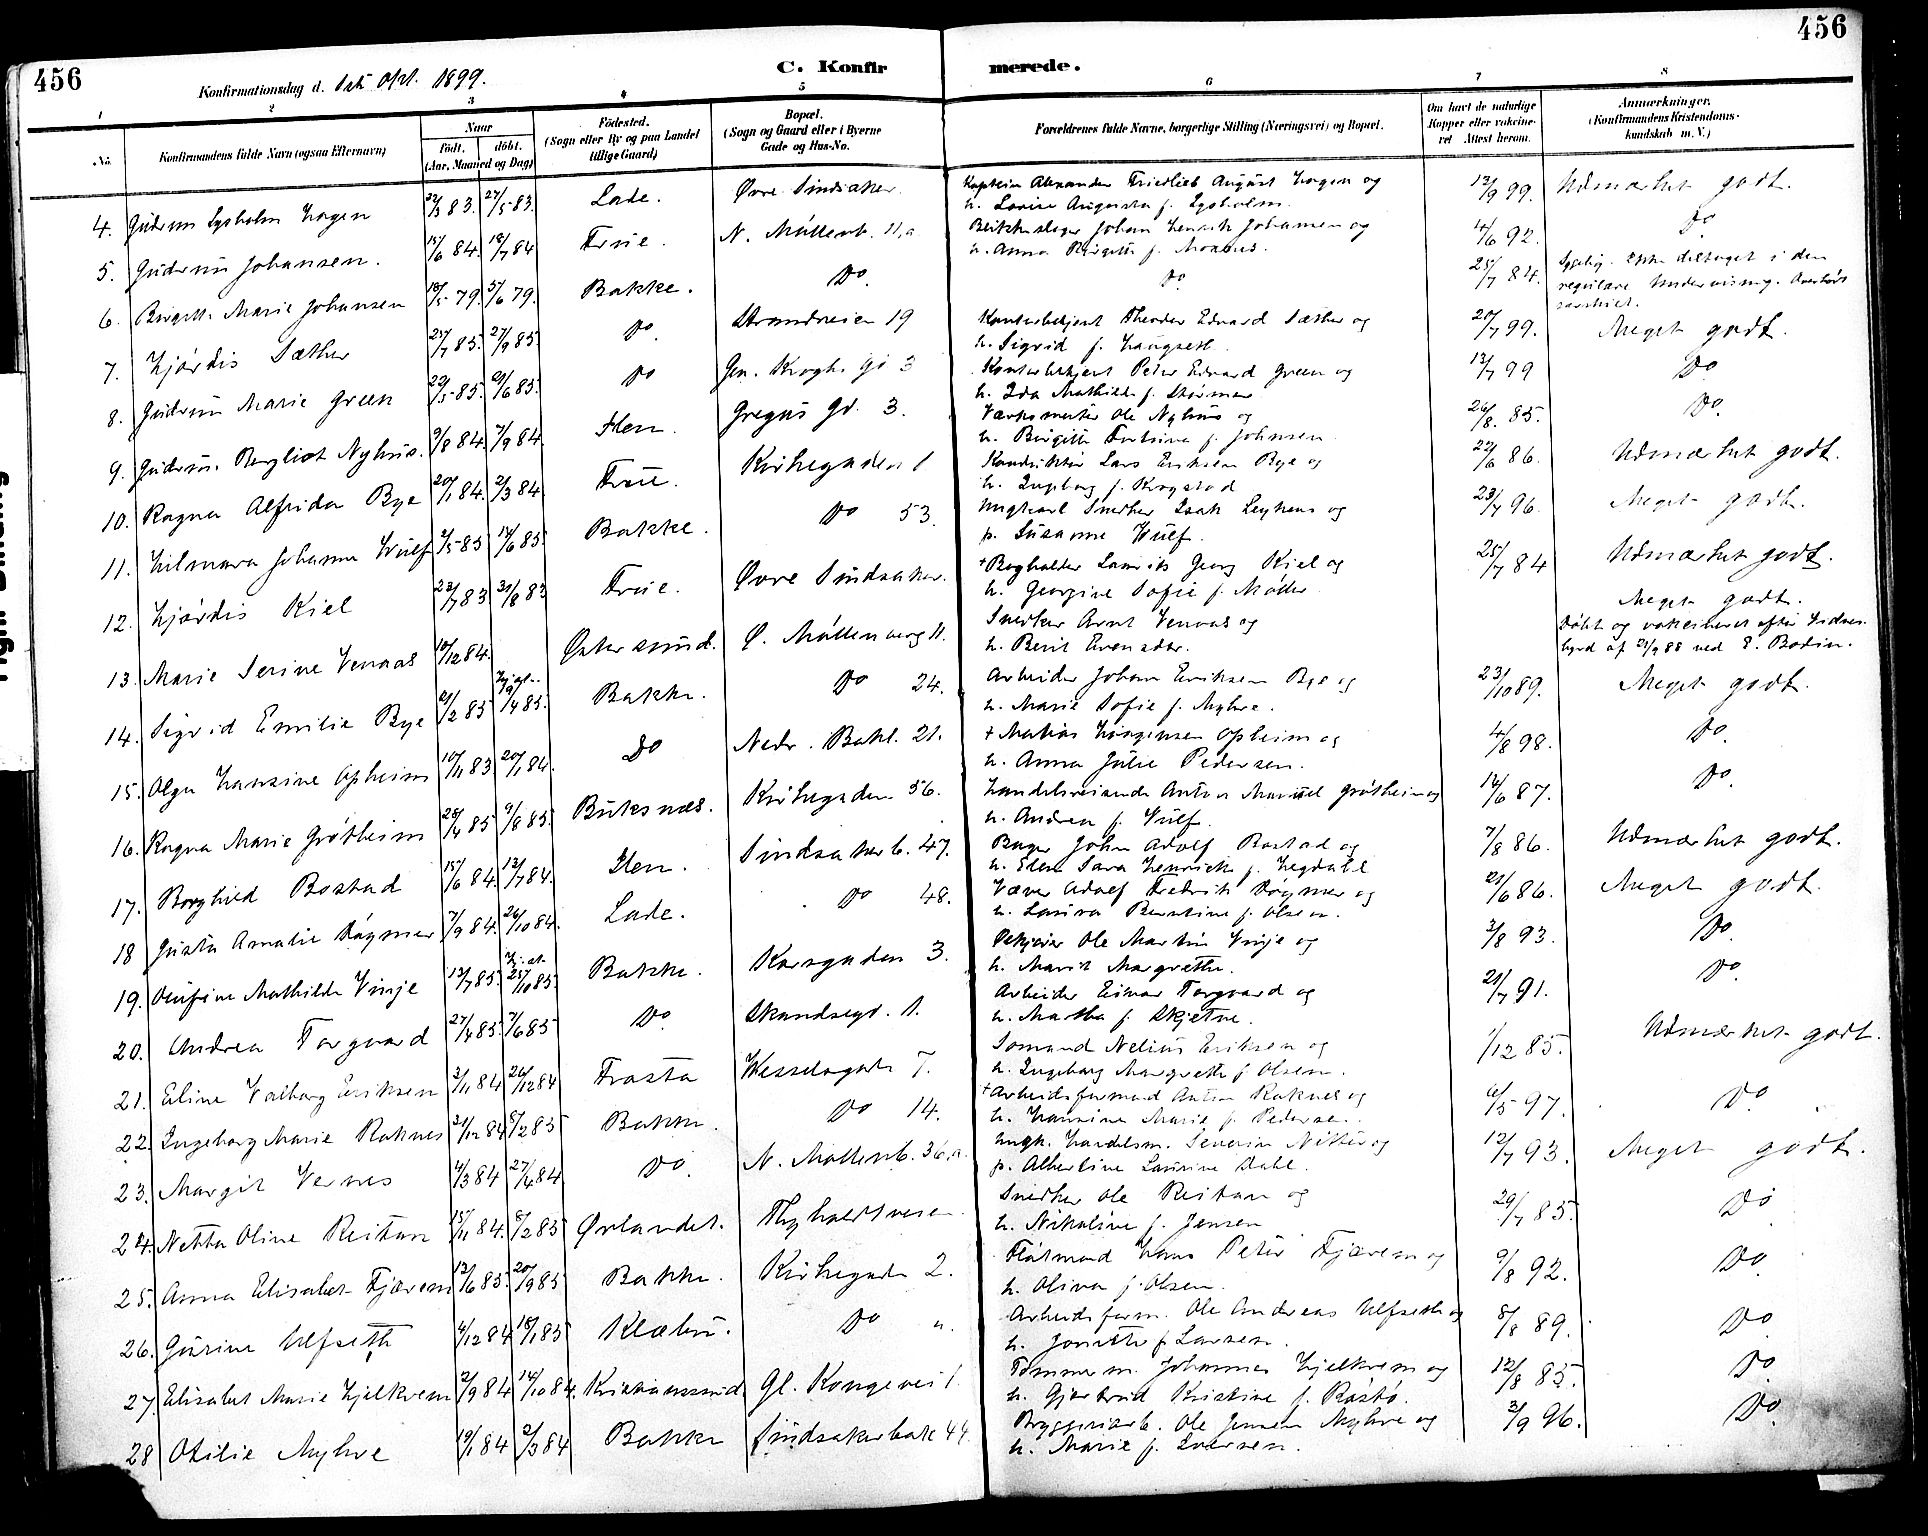 456
C. Konfirmerede.
456
Konfirmationsdag d. 1ste Okt. 1899.
1 2 3 4 5 6 7 8
No.
Konfirmandens fulde Navn (ogsaa Efternavn)
Naar
Født. døbt.
(Aar, Maaned og Dag)
Fødested.
(Sogn eller By og paa Landet
tillige Gaard)
Bopæl.
(Sogn og Gaard eller i Byerne
Gade og Hus-No.
Forældrenes fulde Navne, borgerlige Stilling (Næringsvei) og Bopæl.
Om havt de naturlige
Kopper eller vakcine-
ret Attest herom.
Anmærkninger.
(Konfirmandens Kristendoms-
kundskab m. V.)
4. Gudrun Lysholm Hagen 22/3 83. 27/5 83. Lade. Øvre Sindsaker. Kaptein Alexander Friedlieb August Hagen og
h. Lovise Augusta f. Lysholm. 13/9 99. Udmærket godt.
5. Gudrun Johansen. 15/6 84. 18/7 84 Frue. N. Møllenb. 11,a Blikkenslager Johan Henrik Johansen og
h. Anna Birgitte f. Moxnes. 4/6 92. Do
6. Birgitte Marie Johansen 18/5 79. 5/6 79. Bakke. Do. Do. 25/7 84. Sygelig. Ikke deltaget i den
regulære Undervisning. Overhørt
særskilt.
7. Hjørdis Sæther 25/7 85. 27/9 85. Do Strandveien 19 Kontorbetjent Theodor Edvard Sæther og
h. Sigrid f. Haugseth. 20/7 99. Meget godt.
8. Gudrun Marie Green 29/5 85. 9/6 85. Do Gen. Kroghs gd 3 Kontorbetjent Peter Edvard Green og
h. Ida Mathilde f. Størmer. 13/7 99 Do
9. Gudrun Bergliot Nyhus. 9/8 84. 7/9 84. Ilen. Gregus Gd. 3. Værksmester Ole Nyhus og
h. Birgitte f. Johnsen. 26/8. 85. Do.
10. Ragna Alfrida Bye 20/1 84. 2/3 84 Frue. Kirkegaden 1 Konduktør Lars Eriksen Bye og
h. Ingeborg f. Krogstad 22/6 86. Udmærket godt.
11. Hilmara Johanna Wulf 2/5 85 14/6 85. Bakke. Do 53. Ungkarl Snedker Isak og
p. Susanne Wulf. 23/7 96. Meget godt.
12. Hjørdis Kiel 23/7 83 31/8 83 Frue. Øvre Sindsaker. + Bogholder Laurits Georg Kiel og
h. Georgine Sofie f. Møller. 25/7 84 Udmærket godt.
13. Marie Serine Venaas 10/12 84. Østersund. Ø. Møllenberg 11. Snedker Arnt Venaas og
h. Berit Evensdtr. Meget godt.
Døbt og vakcineret efter Vidnes-
byrd af 21/9 88 ved E. Bodin.
14. Sigrid Emilie Bye 21/2 85 Hj. 9/4 85. Bakke. Do 24. Arbeider Johan Eriksen Bye og
h. Marie Sofie f. Myhre. 23/10 89. Meget godt.
15. Olga Hansine Opheim 10/11 83 20/1 84. Do Nedr. Bakl. 21. + Matias Jørgensen Opheim og
h. Anna Julie Pedersen. 4/8 98. Do.
16. Ragna Marie Grøtheim 28/4 85 9/8 85. Buksnæs. Kirkegaden 56. Handelsreisende Anton Manuel Grøtheim og
h. Andrea f. Wulf. 14/6 87. Do.
17. Borghild Bostad 15/6 84. 13/7 84. Ilen. Sindsakerb. 47. Bager John Adolf Bostad og
h. Elen Sara Henrick f. Hegdahl 7/8 86. Udmærket godt.
18 Gusta Amalie Røgmer 7/9 84. 26/10 84. Lade. Do 48. Væver Adolf Fredrik Røgmer og
h. Laura Berntine f. Olsen. 21/6 86. Meget godt.
19. Mathilde Vinje 13/7 85. Hj. 25/10 85. Bakke. Korsgaden 3. Ole Martin Vinje og
h. Marit Margrethe. 3/8 93. Do.
20. Andrea Torgvard 27/4 85. 7/6 85 Do. Skandsegd. 1. Arbeider Einar Torgvard og
h. Martha f. Skjetne. 21/7 91. Do.
21. Eline Valborg Eriksen 3/11 84 26/12 84 Frosta Wesselsgade 7. Sømand Nelius Eriksen og
h. Ingeborg Margrethe f. Olsen. 1/12 85. Udmærket godt.
22. Ingeborg Marie Raknes 21/12 84 8/2 85 Bakke. Do 14. + Arbeidsformand Anton Raknes og
h. Hansine Marie f. Pedersen. 6/5 97. Do.
23. Margit Vernes 4/3 84 27/4 84 Do. N. Møllenb. 36,a. Ungk. Handelsm. Severin og
p. Albertine Laurine Dahl. 12/7 93. Meget godt.
24. Netta Oline Reitan 15/11 84. 8/2 85 Ørlandet. Thyholdtveien Snedker Ole Reitan og
h. Nikoline f. Jensen 29/7 85. Do
25. Anna Elisabet Fjærem 13/6 85. 20/9 85 Bakke. Kirkegade 2. Hans Peter Fjærem og
h. Oliva f. Olsen. 9/8 92. Do.
26. Gurine Ulfseth 4/12 84 18/1 85 Klæbu. Do „. Arbeidsform. Ole Andreas Ulfseth og
h. Jonette f. Larsen. 8/8 89. Do.
27. Elisabet Marie Hjelkrem 12/9 84 19/10 84. Kristianssund Gl. Kongevei 1. Tømmerm. Johannes Hjelkrem og
h. Gjertrud Kristine f. Røstø. 12/8 85. Do.
28 Otilie Myhre 19/1 84 2/3 84 Bakke Sindsakerbak 44. Bryggeriarb. Ole Jensen Myhre og
h. Marie f. Iversen. 3/9 96. Do.